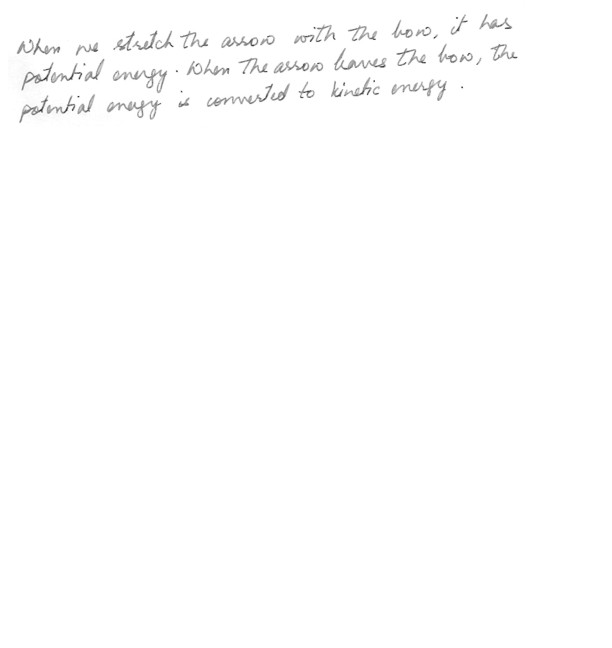 When we stretch the arrow with the bow, it has
potential energy. When The arrow leaves the bow, the
potential energy is converted to kinetic energy.